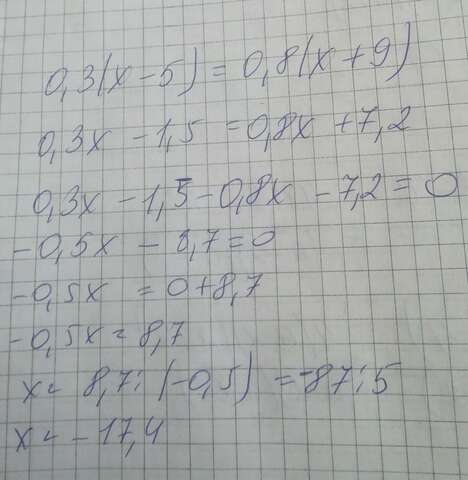 0,3(x - 5) = 0,8(x + 9)
0,3x - 1,5 = 0,8x + 7,2
0,3x - 1,5 - 0,8x - 7,2 = 0
-0,5x - 8,7 = 0
-0,5x = 0 + 8,7
-0,5x = 8,7
x = 8,7 : (-0,5) = -87 : 5
x = -17,4